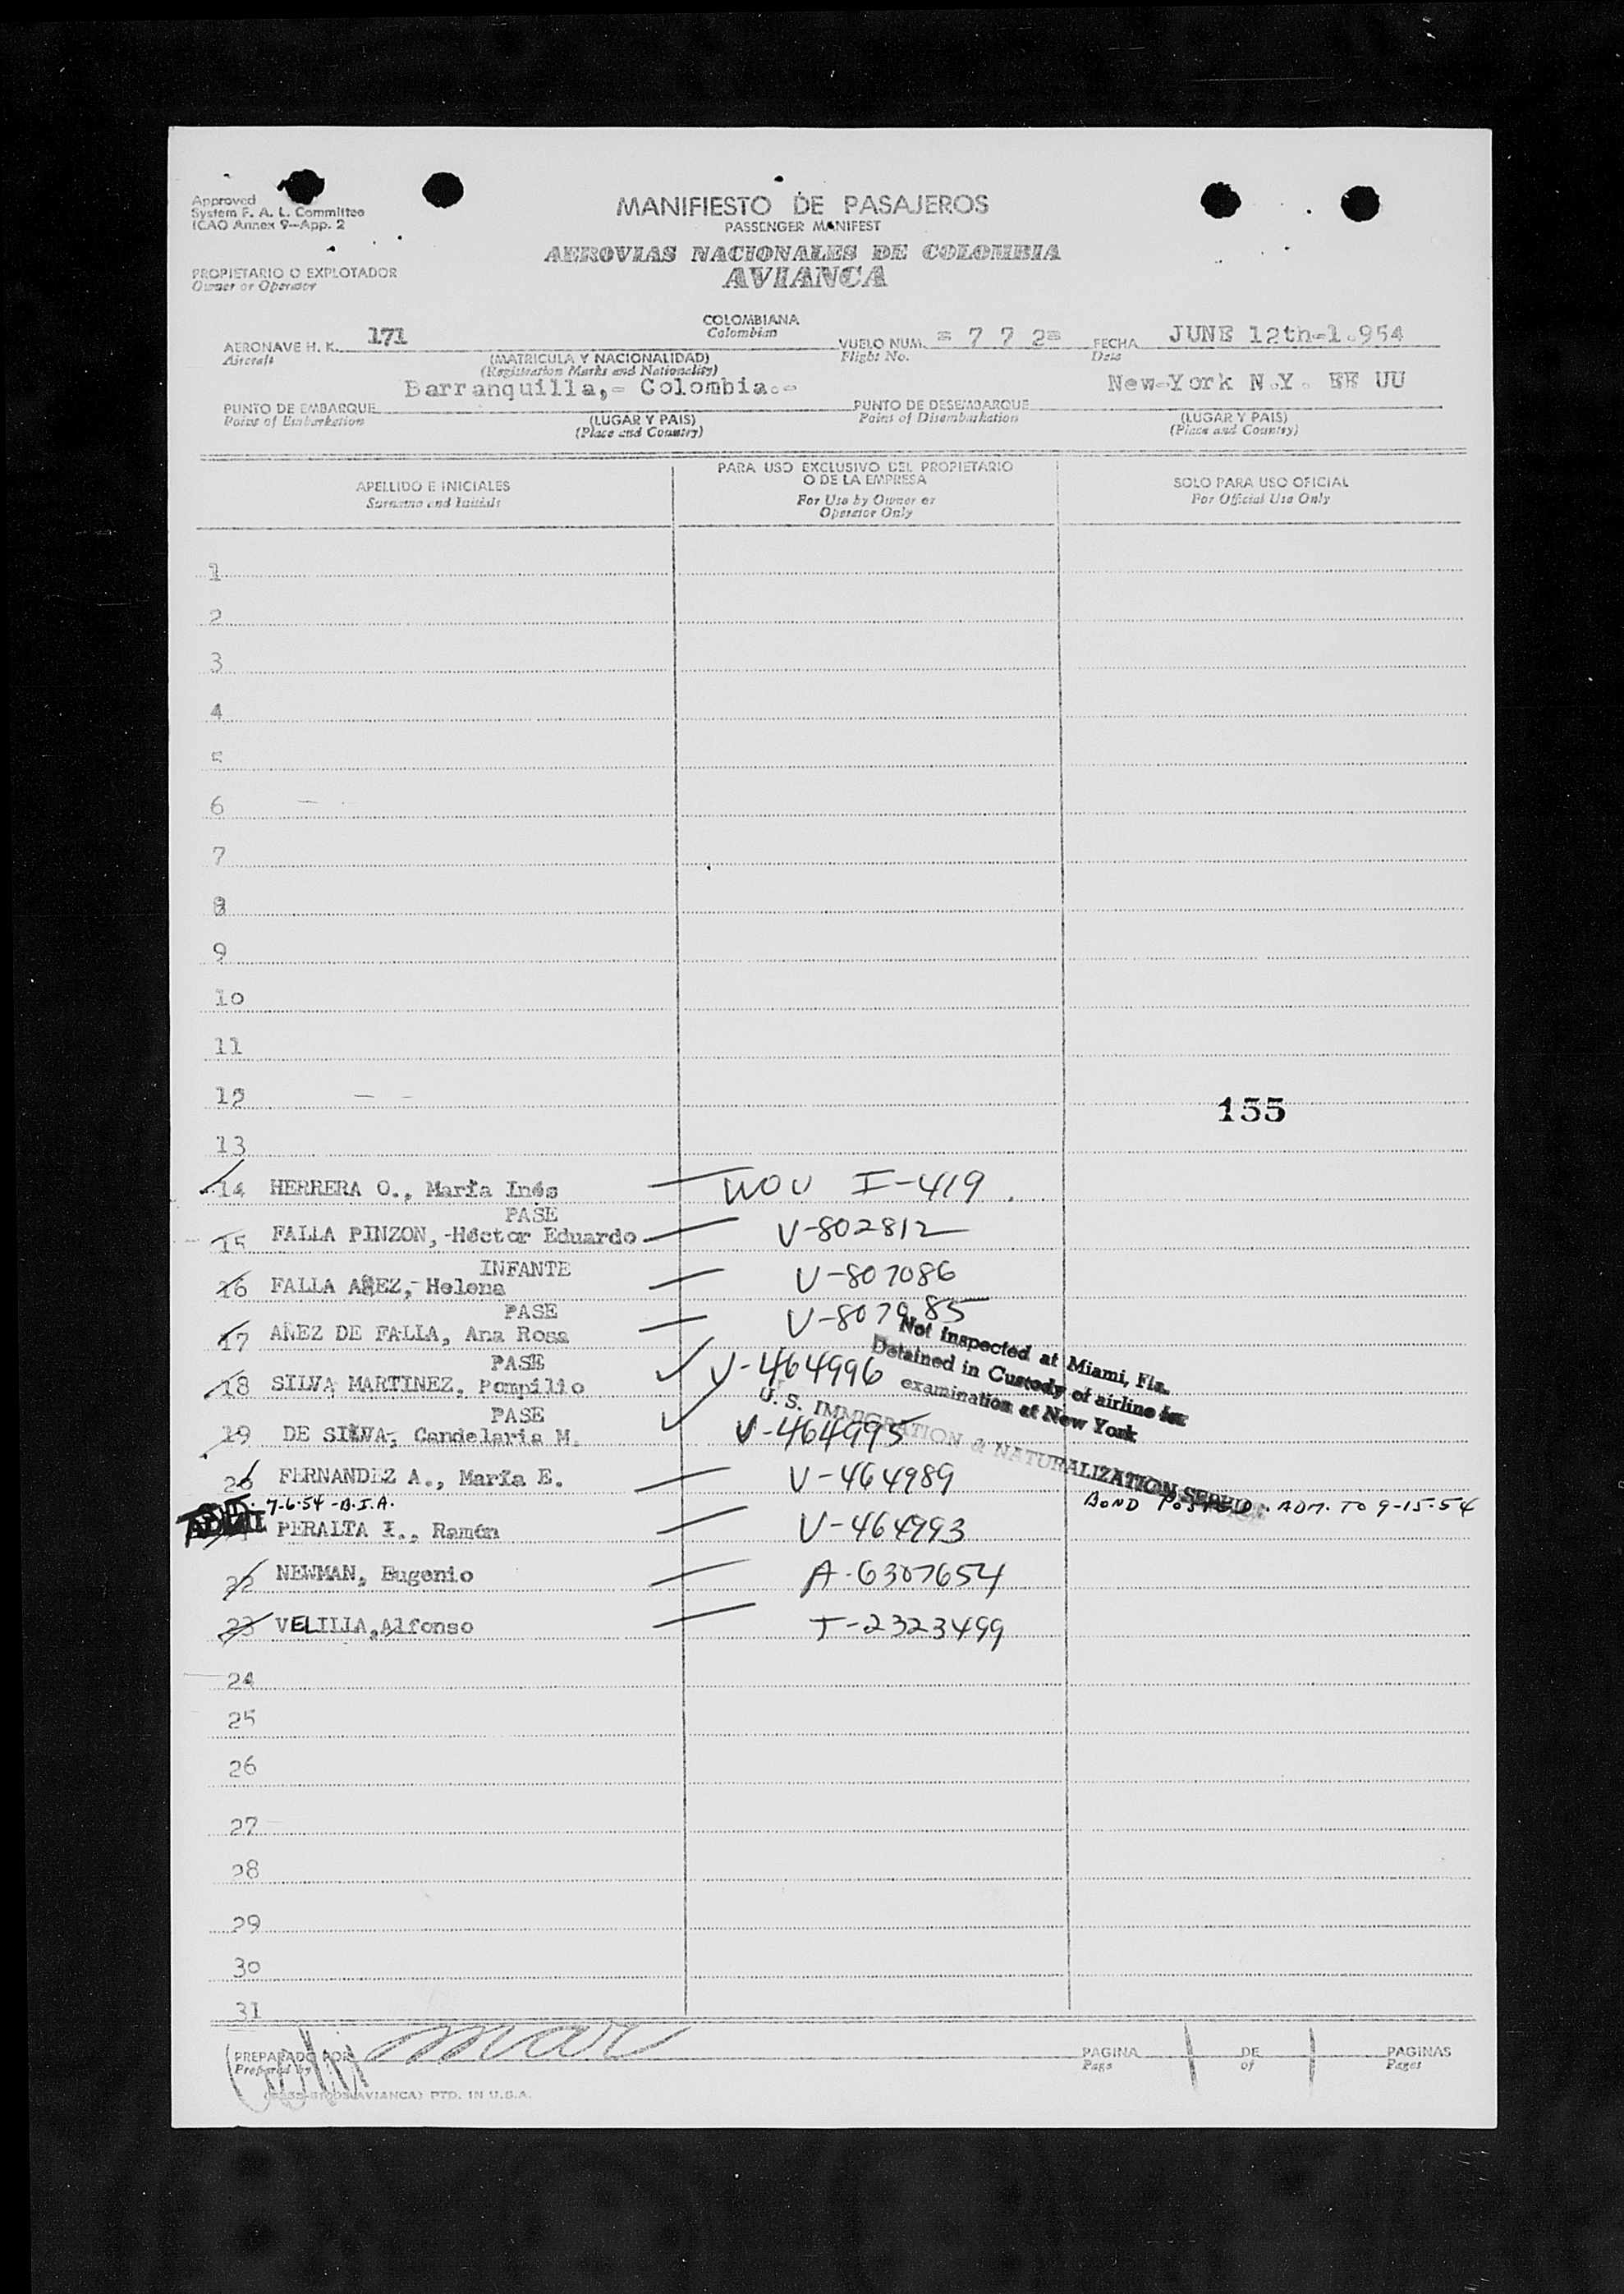 Approved
System F. A. L. Committee
ICAO Annex 9-App. 2
MANIFIESTO DE PASAJEROS
PASSENGER MANIFEST
AEROVIAS NACIONALES DE COLOMBIA
AVIANCA
PROPIETARIO O EXPLOTADOR
Owner or Operator
COLOMBIANA
Colombian
AERONAVE H. K. 171
Aircraft
(MATRICULA Y NACIONALIDAD)
(Registration Marks and Nationality)
VUELO NUM. = 7 7 2=
Flight No.
FECHA JUNE 12th-1.954
Date
PUNTO DE EMBARQUE Barranquilla,- Colombia.-
Point of Embarkation
(LUGAR Y PAIS)
(Place and Country)
PUNTO DE DESEMBARQUE New-York N.Y. EE UU
Point of Disembarkation
(LUGAR Y PAIS)
(Place and Country)
APELLIDO E INICIALES
Surname and Initials
PARA USO EXCLUSIVO DEL PROPIETARIO
O DE LA EMPRESA
For Use by Owner or
Operator Only
SOLO PARA USO OFICIAL
For Official Use Only
1
2
3
4
5
6
7
8
9
10
11
12
155
13
14 HERRERA O., María Inés WOV I-419
PASE
15 FALLA PINZON,-Héctor Eduardo V-802812
INFANTE
16 FALLA AÑEZ,-Helena V-807086
PASE
17 AÑEZ DE FALLA, Ana Rosa V-807985
PASE
18 SILVA MARTINEZ, Pompilio V-464996
Not inspected at Miami, Fla.
Detained in Custody of airline for
examination at New York
U. S. IMMIGRATION & NATURALIZATION SERVICE
PASE
19 DE SILVA, Candelaria M. V-464995
20 FERNANDEZ A., María E. V-464989
7-6-54 -B.I.A. BOND POSTED. ADM. TO 9-15-54
PERALTA I., Ramón V-464993
22 NEWMAN, Eugenio A-6307654
23 VELILLA,Alfonso T-2323499
24
25
26
27
28
29
30
31
PREPARADO POR
Prepared by
PAGINA
Page
DE
of
PAGINAS
Pages
AVIANCA) PTD. IN U.S.A.